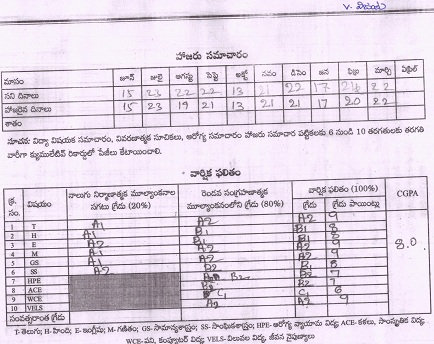 V. వైజయంతి
హాజరు సమాచారం
మాసం జూన్ జులై ఆగస్టు సెప్టె అక్టో నవం డిసెం జన ఫిబ్ర మార్చి ఏప్రిల్
పని దినాలు 15 23 22 22 13 21 22 17 24 22
హాజరైన దినాలు 15 23 19 21 13 21 21 17 20 22
శాతం
సూచన: విద్యా విషయక సమాచారం, వివరణాత్మక సూచికలు, ఆరోగ్య సమాచారం హాజరు సమాచార పట్టికలకు 6 నుండి 10 తరగతులకు తరగతి
వారీగా క్యుములేటివ్ రికార్డులో పేజీలు కేటాయించాలి.
వార్షిక ఫలితం
క్ర. సం. విషయం నాలుగు నిర్మాణాత్మక మూల్యాంకనాల సగటు గ్రేడు (20%) రెండవ సంగ్రహణాత్మక మూల్యాంకనంలోని గ్రేడు (80%) వార్షిక ఫలితం (100%) CGPA
గ్రేడు గ్రేడు పాయింట్లు
1 T A1 A2 A2 9
2 H A1 B1 B1 8
3 E A2 B1 B1 8
4 M A1 A2 A2 9 8.0
5 GS A1 A2 A2 9
6 SS A2 B2
7 HPE B2 A2 7
8 ACE B2 7
9 WCE C1 C1 6
10 VELS A2 A2 9
సంవత్సరాంత గ్రేడు
T-తెలుగు; H-హింది; E-ఇంగ్లీషు; M-గణితం; GS-సామాన్యశాస్త్రం; SS-సాంఘికశాస్త్రం; HPE-ఆరోగ్య వ్యాయామ విద్య; ACE-కళలు, సాంస్కృతిక విద్య;
WCE-పని, కంప్యూటర్ విద్య; VELS-విలువల విద్య, జీవన నైపుణ్యాలు